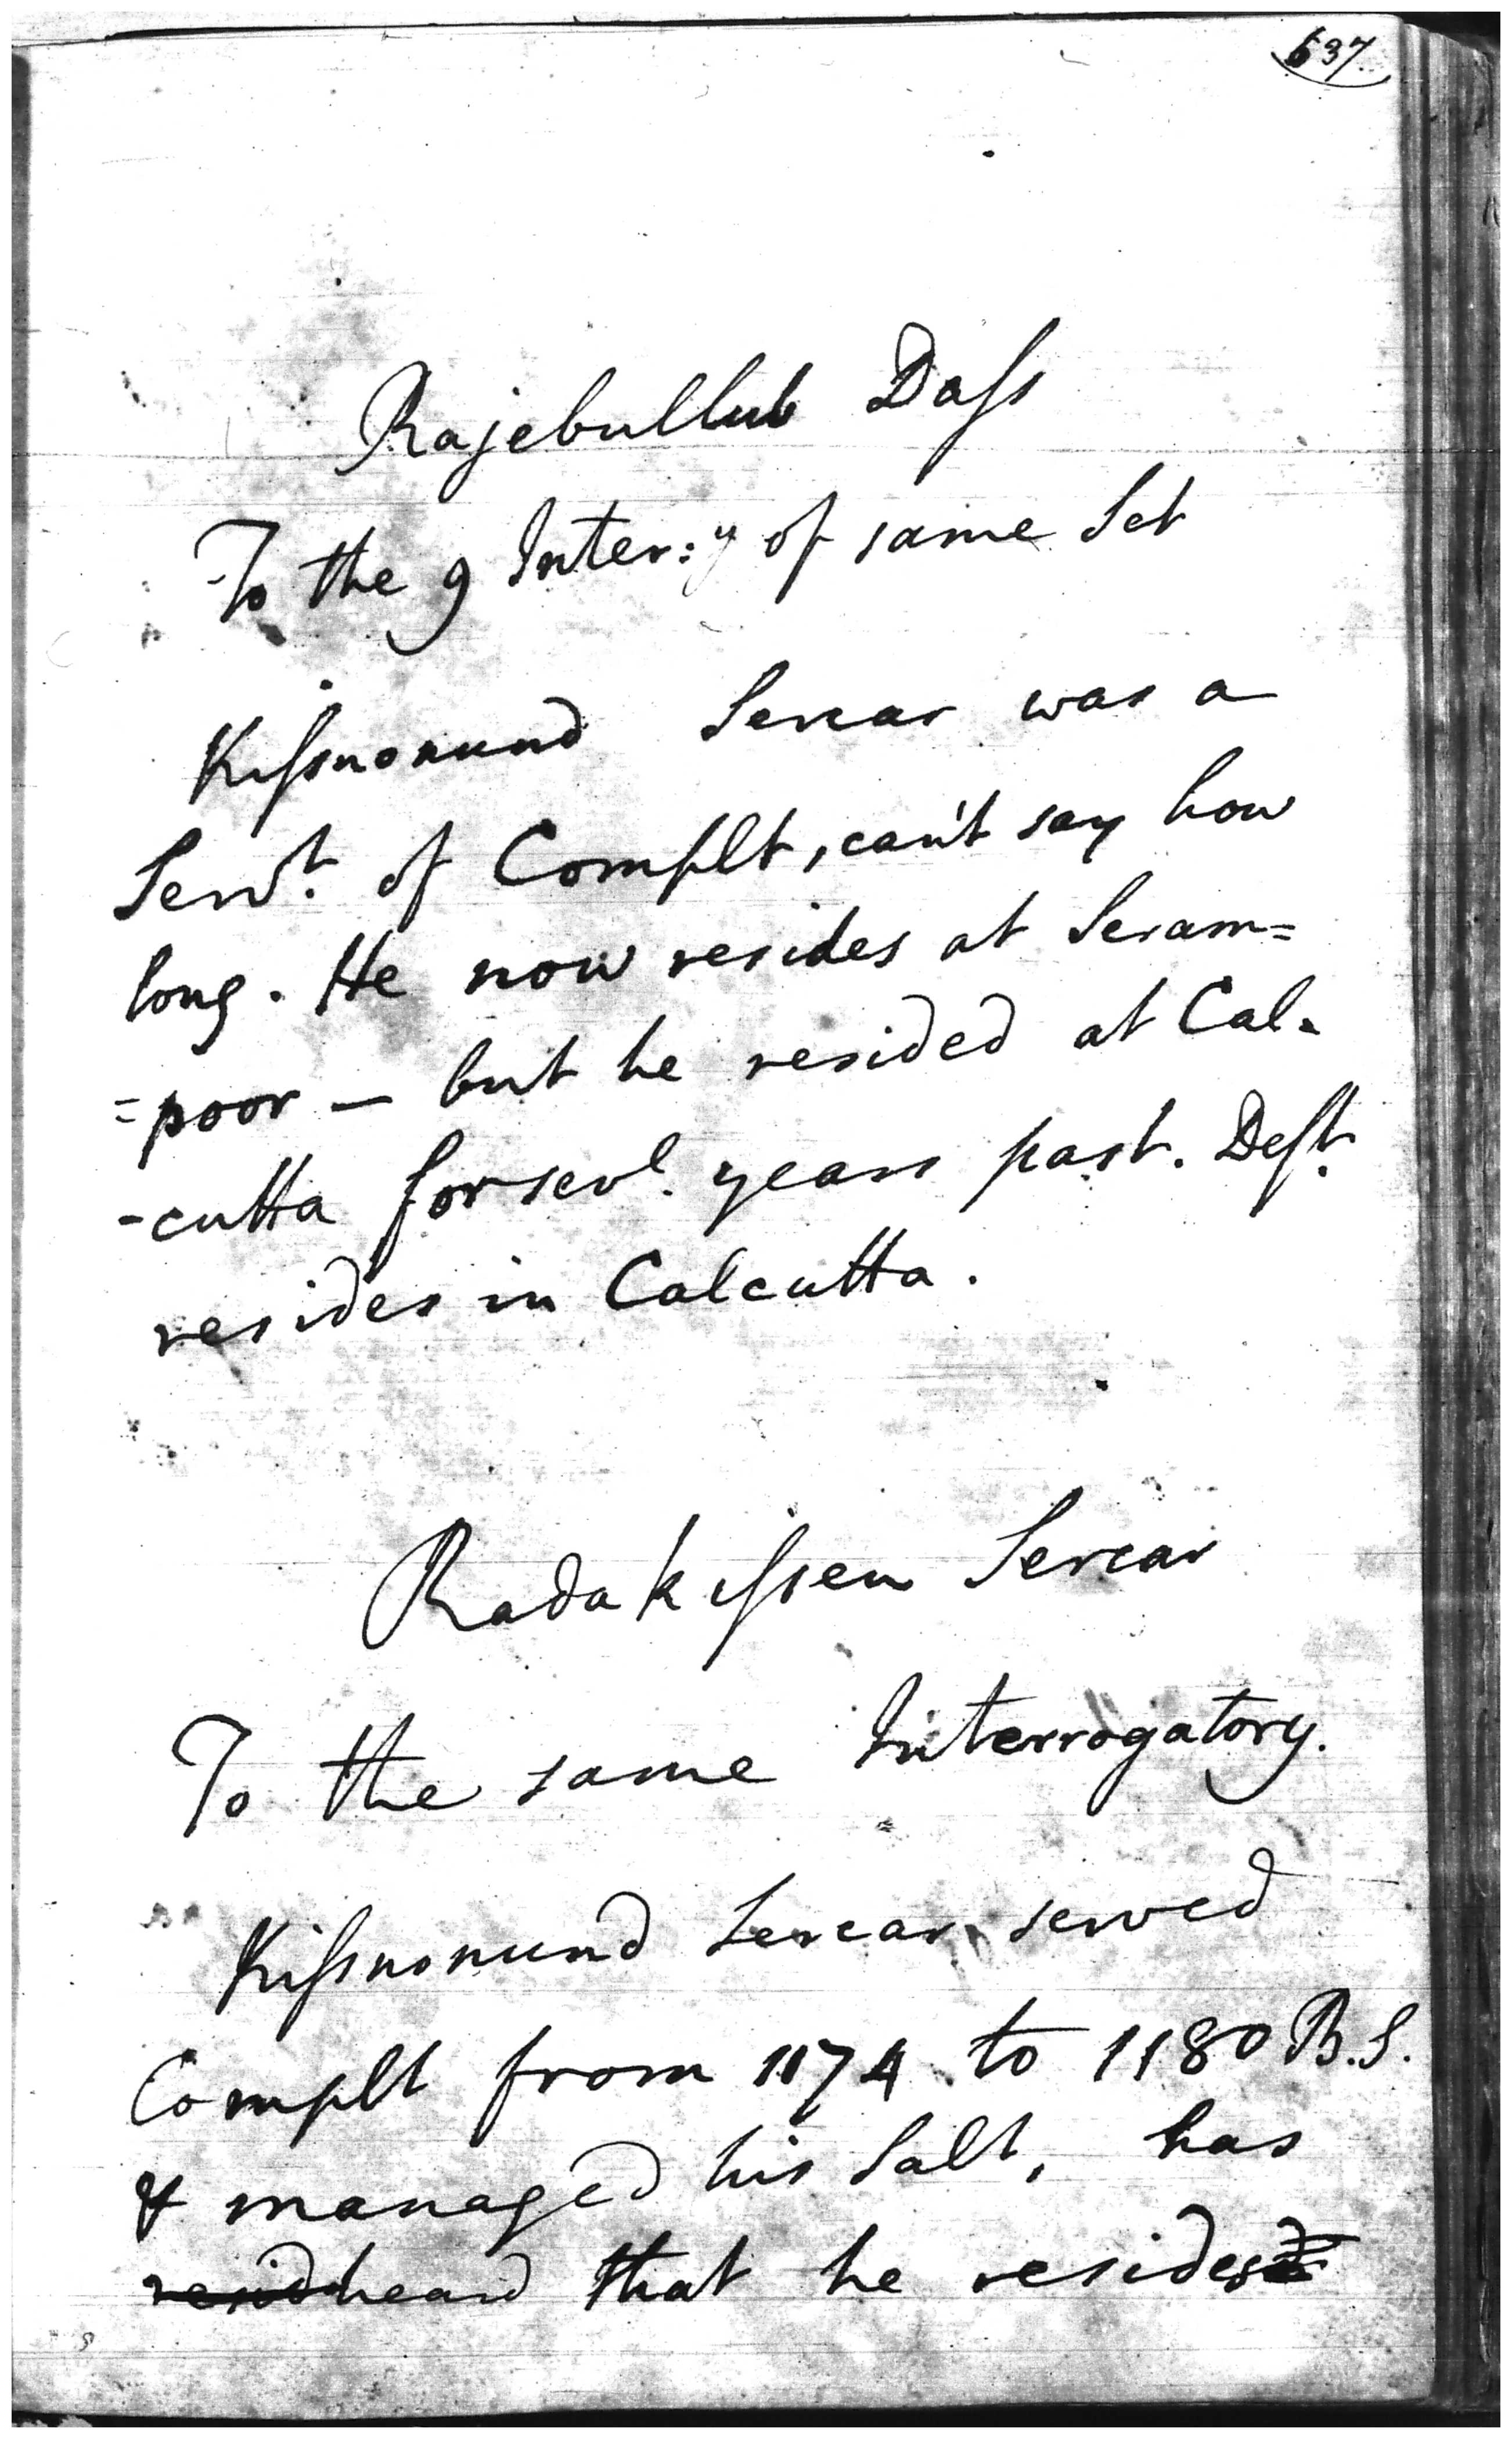 637
Rajebullub Daſs
To the 9 Inter:y of same Set
Kiſsnonund Sercar was a
Servt. of Complt, can't say how
long. He now resides at Seram=
=poor — but he resided at Cal-
-cutta for sevl. years past. Deft.
resides in Calcutta.
Radakiſsen Sercar
To the same Interrogatory.
Kiſsnonund Sercar served
Complt from 1174 to 1180 B.S.
& managed his Salt, has
resid heard that he resides